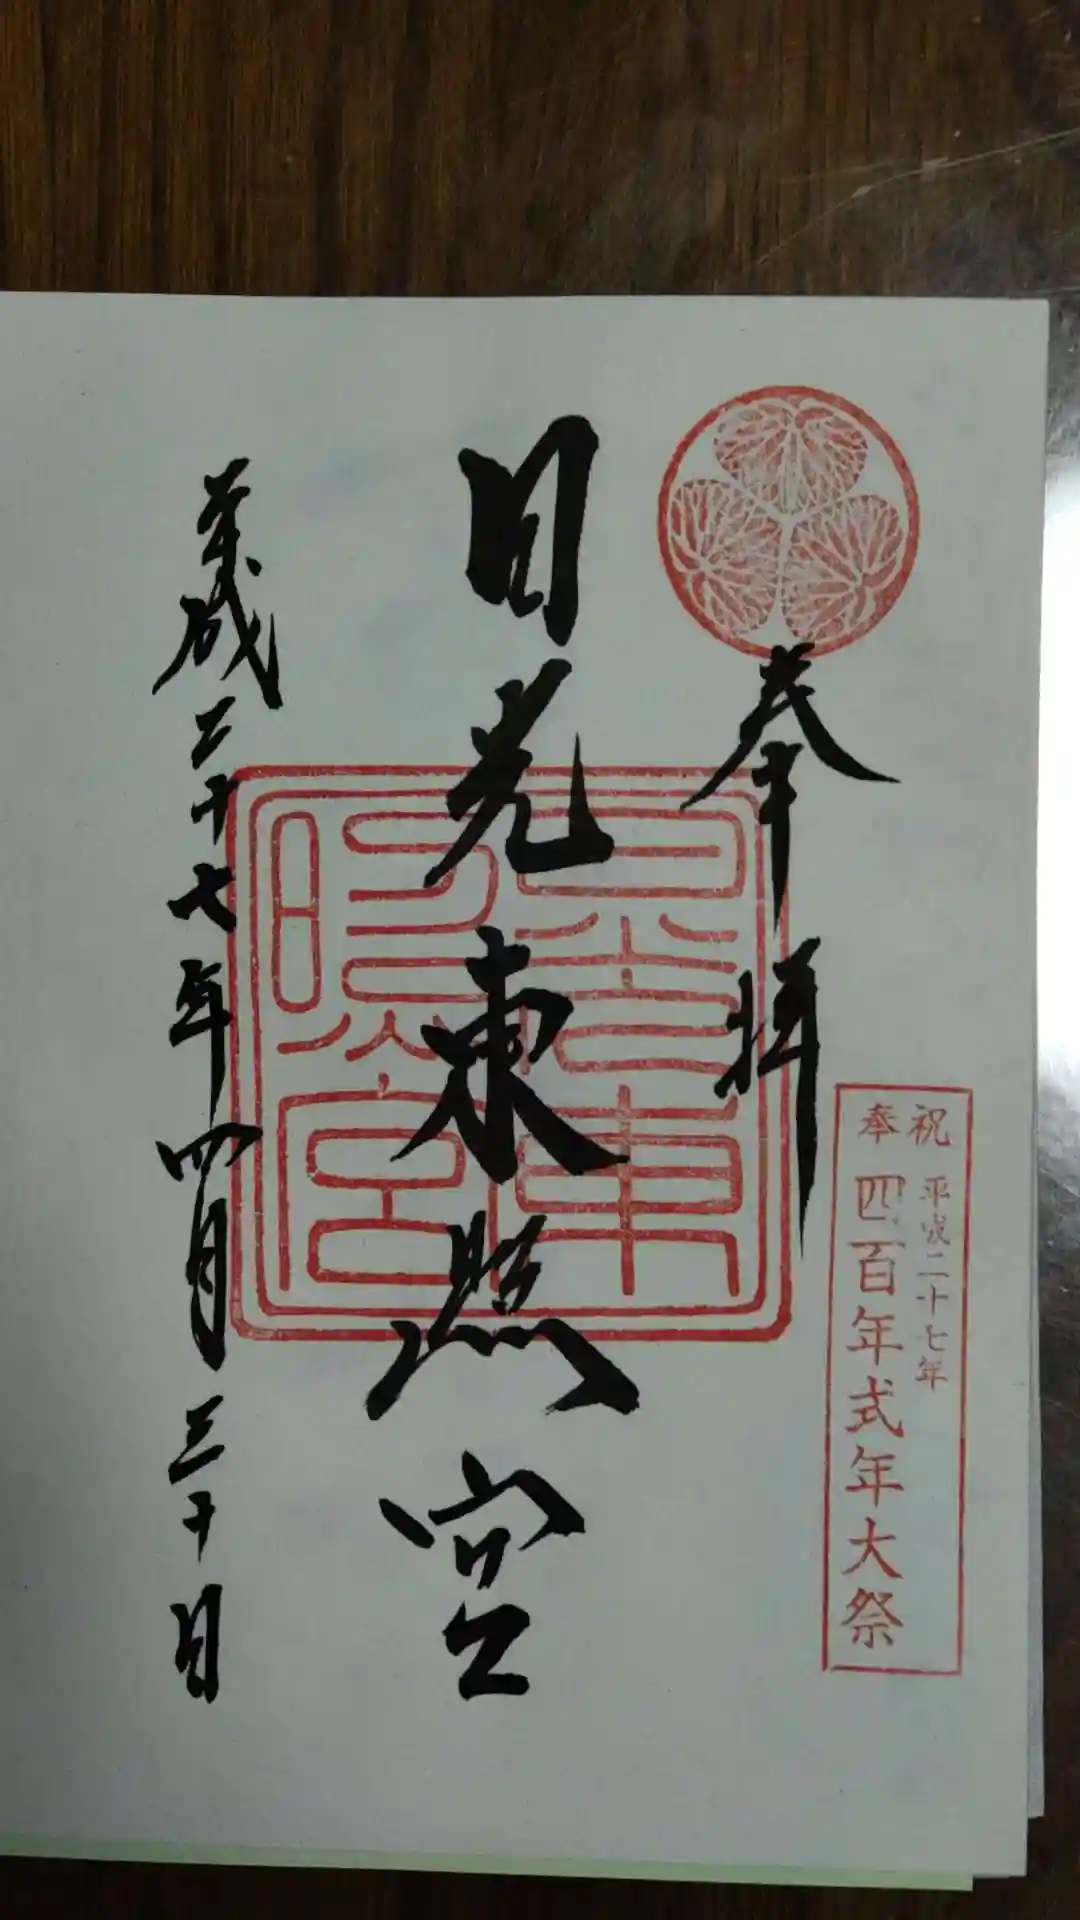 奉拝
日光東照宮
平成二十七年四月三十日
奉祝
平成二十七年
四百年式年大祭